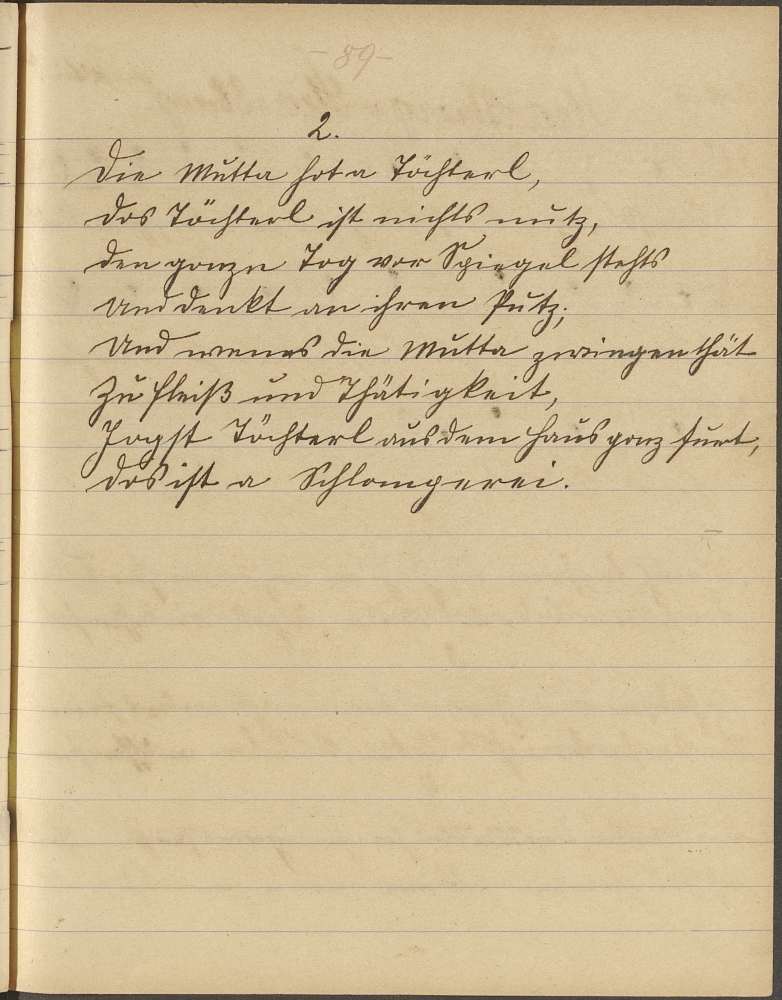 - 89 -
2.
Die Mutta hot a Töchterl,
Dos Töchterl ist nichts nutz,
Den gonzn Tog vor Spiegel stehts
Und denkt an ihren Putz;
Und wenns die Mutta zwingen thät
Zu Fleiß und Thätigkeit,
Jogst Töchterl aus dem Haus gonz furt,
Dos ist a Schlomperei.